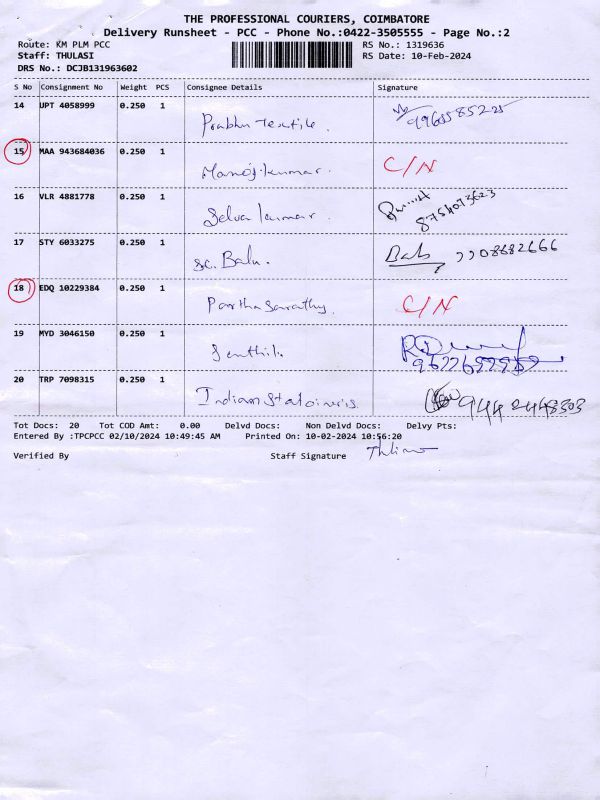 THE PROFESSIONAL COURIERS, COIMBATORE
Delivery Runsheet - PCC - Phone No.:0422-3505555 - Page No.:2
Route: KM PLM PCC RS No.: 1319636
Staff: THULASI RS Date: 10-Feb-2024
DRS No.: DCJB131963602
S No Consignment No Weight PCS Consignee Details Signature
14 UPT 4058999 0.250 1 Prabhu Textile.
15 MAA 943684036 0.250 1 Manoj kumar. C/N
16 VLR 4881778 0.250 1 Selva kumar. 8754073623
17 STY 6033275 0.250 1 sc. Balu. Bab 2208682666
18 EDQ 10229384 0.250 1 Partha Sarathy. C/N
19 MYD 3046150 0.250 1 Senthil.
20 TRP 7098315 0.250 1 Indian 9442448303
Tot Docs: 20 Tot COD Amt: 0.00 Delvd Docs: Non Delvd Docs: Delvy Pts:
Entered By :TPCPCC 02/10/2024 10:49:45 AM Printed On: 10-02-2024 10:56:20
Verified By Staff Signature